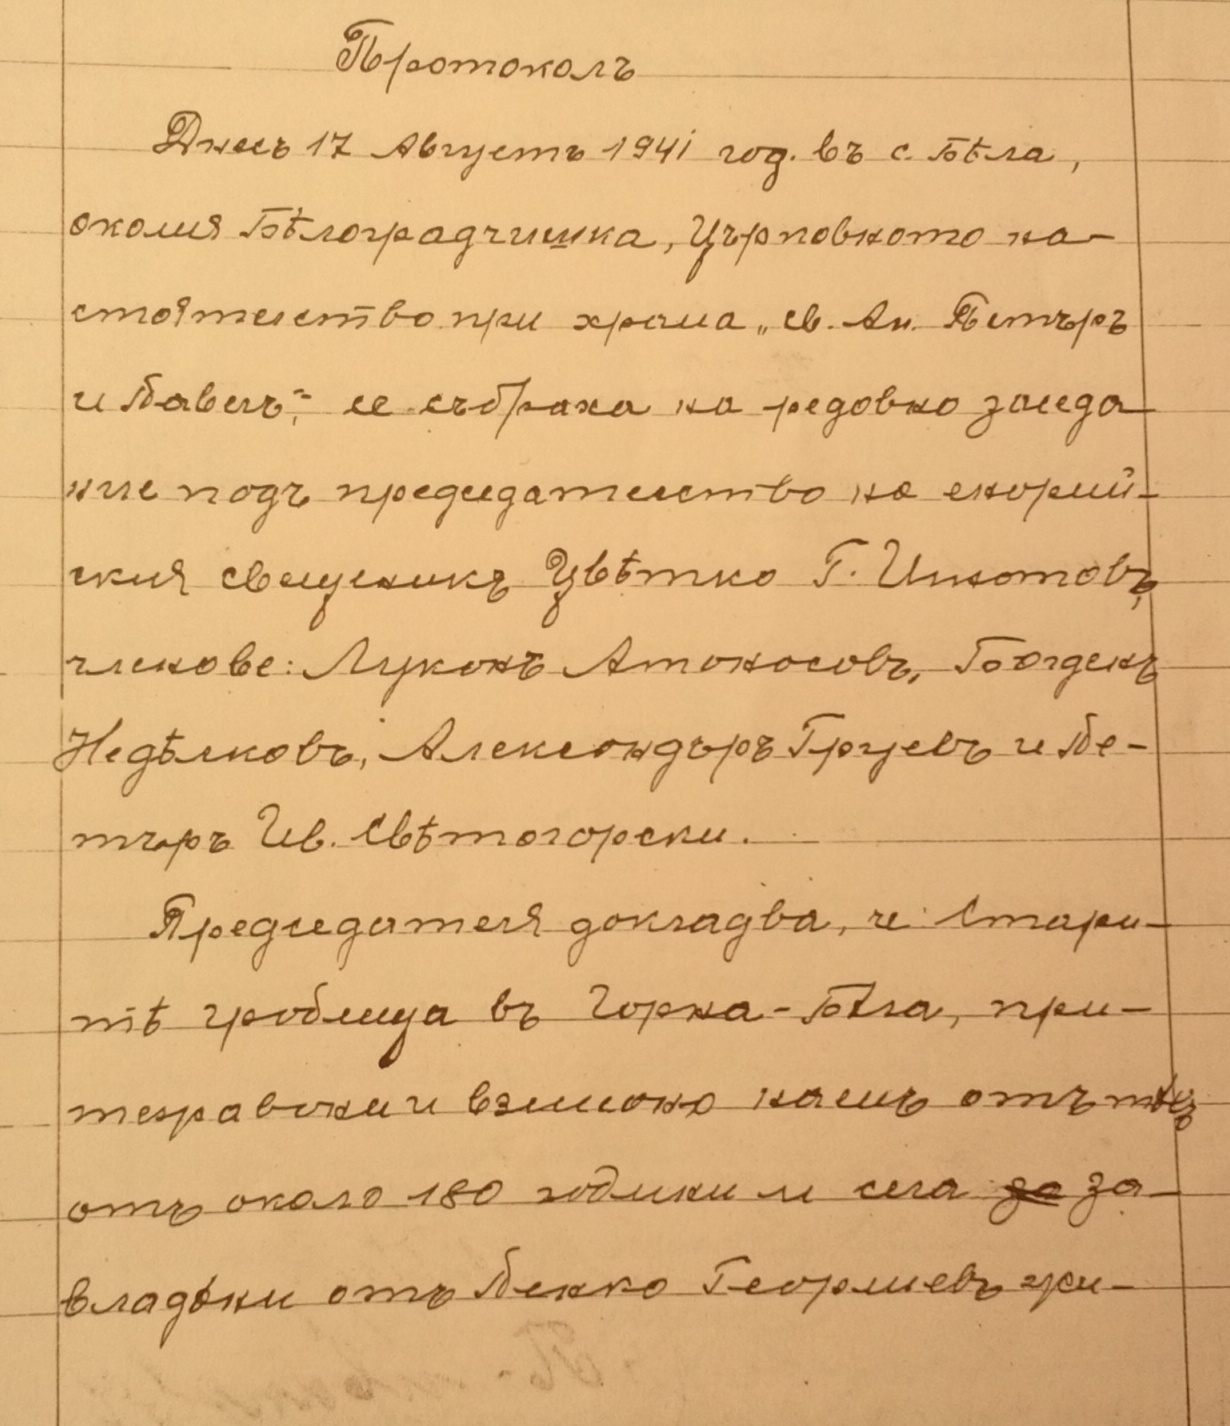 Протоколъ
Днесъ 17 Августъ 1941 год. въ с. Бѣла,
околия Бѣлоградчишка, Църковното на-
стоятелство при храма „св. Ап. Петъръ
и Павелъ“, се събраха на редовно заседа-
ние подъ председателство на енорий-
ския свещеникъ Цвѣтко Г. Игнатовъ,
членове: Луканъ Атанасовъ, Богданъ
Недѣлковъ, Александъръ Груевъ и Пе-
търъ Ив. Свѣтогорски.
Председателя докладва, че Стари-
тѣ гробища въ Горна-Бѣла, при-
тежавани и
отъ около 180 години и сега да за-
владѣни отъ Пенко Георгиевъ жи-